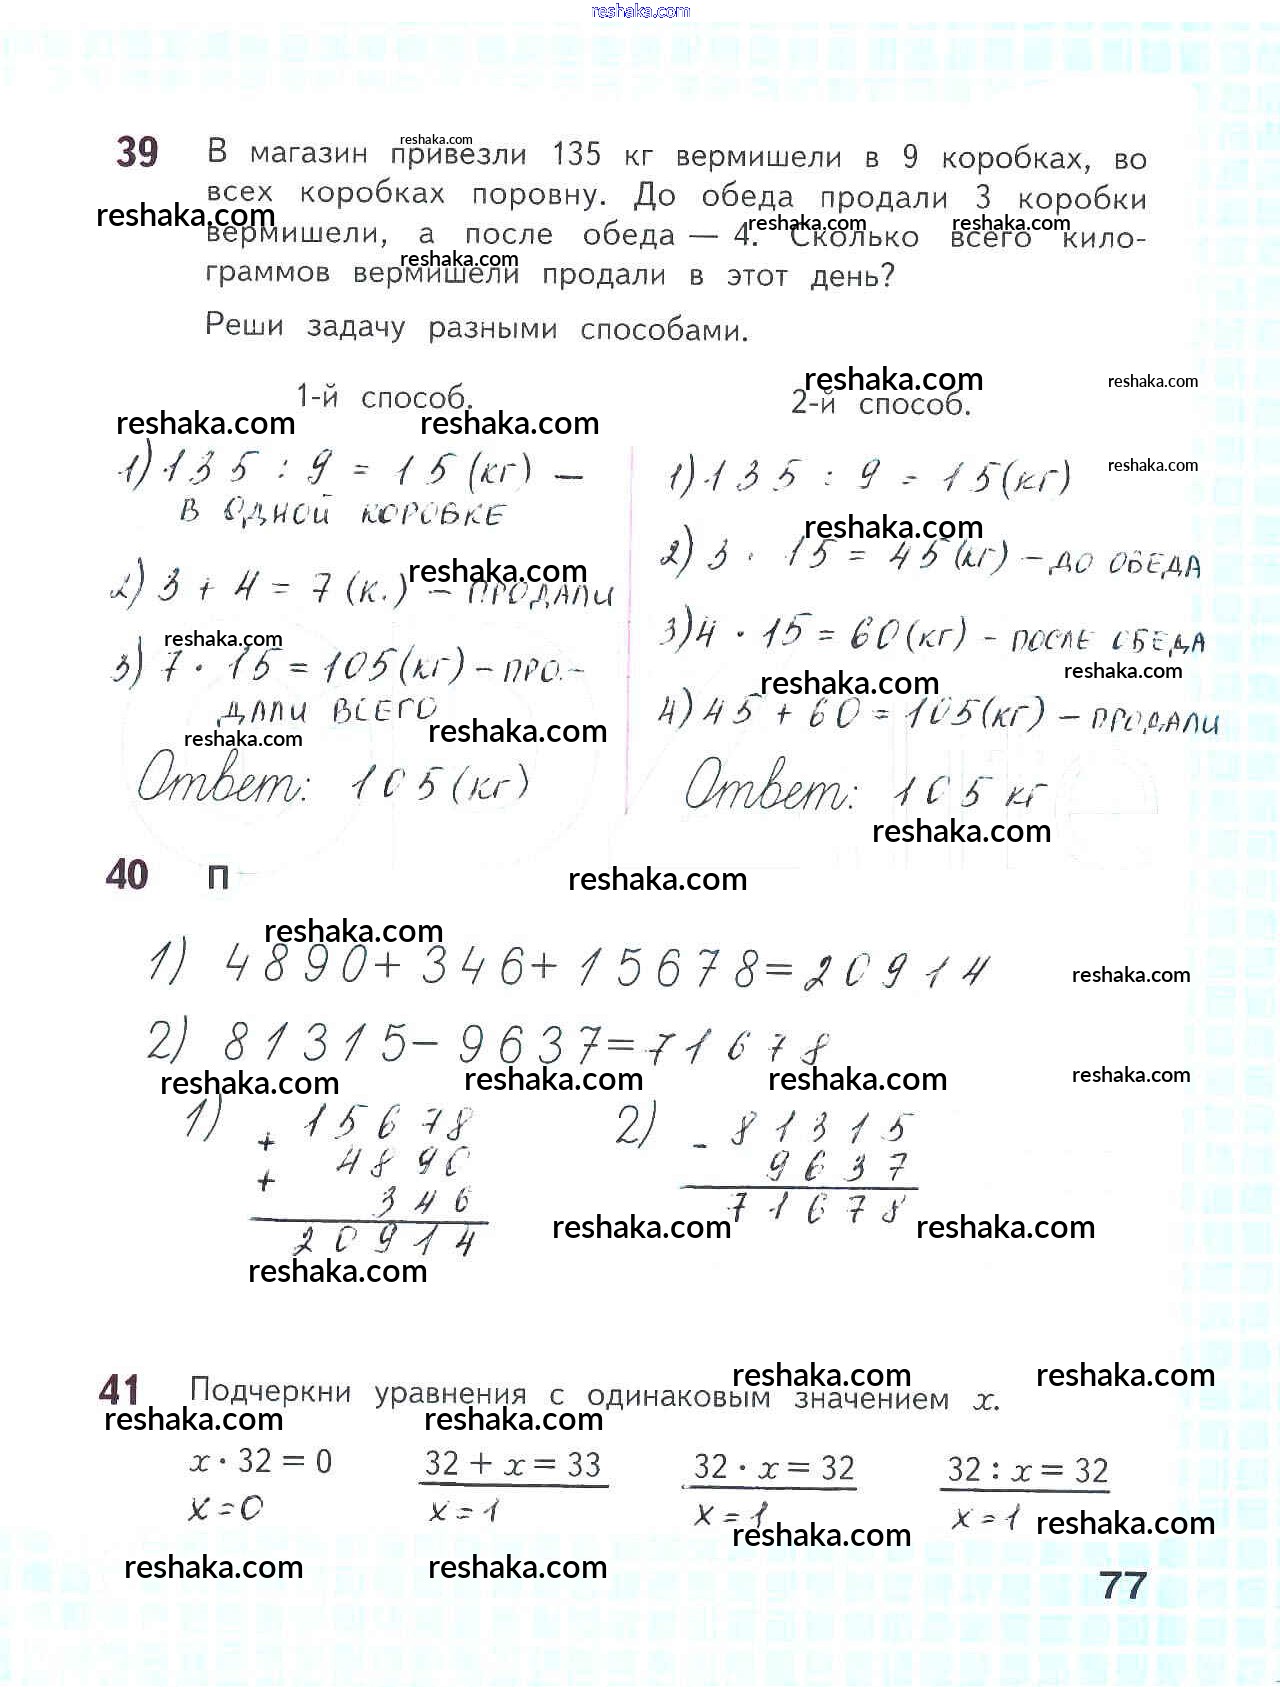 reshaka.com
39 В магазин привезли 135 кг вермишели в 9 коробках, во
reshaka.com
всех коробках поровну. До обеда продали 3 коробки
reshaka.com reshaka.com reshaka.com
вермишели, а после обеда — 4. Сколько всего кило-
reshaka.com
граммов вермишели продали в этот день?
Реши задачу разными способами.
reshaka.com reshaka.com
1-й способ. 2-й способ.
reshaka.com reshaka.com
1) 135 : 9 = 15 (кг) — 1) 135 : 9 = 15 (кг)
reshaka.com
В ОДНОЙ КОРОБКЕ
reshaka.com
2) 3 · 15 = 45 (кг) – ДО ОБЕДА
reshaka.com
2) 3 + 4 = 7 (к.) – ПРОДАЛИ
3) 4 · 15 = 60 (кг) – ПОСЛЕ ОБЕДА
reshaka.com
3) 7 · 15 = 105 (кг) – ПРО-
reshaka.com reshaka.com
ДАЛИ ВСЕГО 4) 45 + 60 = 105 (кг) – ПРОДАЛИ
reshaka.com reshaka.com
Ответ: 105 (кг) Ответ: 105 кг
reshaka.com
40 П
reshaka.com
reshaka.com
1) 4890+346+15678=20914
reshaka.com
2) 81315–9637=71678
reshaka.com reshaka.com reshaka.com reshaka.com
1) 15678 2) – 81315
+ 4890 9637
+ 346 71678
20914
reshaka.com reshaka.com
reshaka.com
reshaka.com reshaka.com
41 Подчеркни уравнения с одинаковым значением x.
reshaka.com reshaka.com
x · 32 = 0 32 + x = 33 32 · x = 32 32 : x = 32
x = 0 x = 1 x = 1 x = 1
reshaka.com reshaka.com
reshaka.com reshaka.com
77